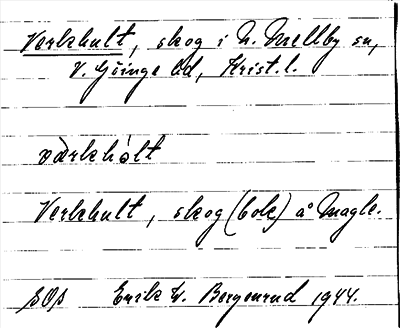 Verkhult, skog i N. Mellby sn,
V. Göinge hd, Krist. l.
värkhult
Verkhult, skog (bok) å Magle.
SOS Erik W. Bergenrud 1944.